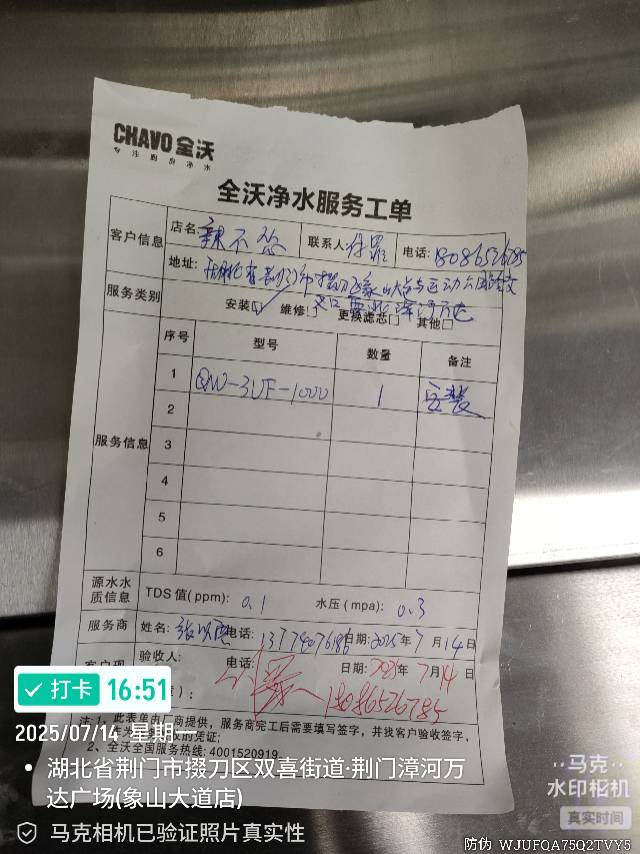 CHAVO 全沃
专注商厨净水
全沃净水服务工单
客户信息
店名: 辣不怂 联系人: 电话: 18086526785
地址: 湖北省荆门市掇刀区象山大道与
服务类别 安装☑ 维修□ 更换滤芯□ 其他□
服务信息
序号 型号 数量 备注
1 QW-3UF-1000 1 安装
2
3
4
5
6
源水水质信息 TDS值(ppm): 0.1 水压(mpa): 0.3
服务商 姓名: 电话: 日期: 2025年7月14日
验收人: 电话: 18086526785 日期: 2025年7月14日
注:1、此表单由厂商提供，服务商完工后需要填写签字，并找客户验收签字，
的凭证;
2、全沃全国服务热线:4001520919
打卡 16:51
2025/07/14 星期一
湖北省荆门市掇刀区双喜街道·荆门漳河万
达广场(象山大道店)
马克相机已验证照片真实性
马克
水印相机
真实时间
防伪 WJUFQA75Q2TVY5